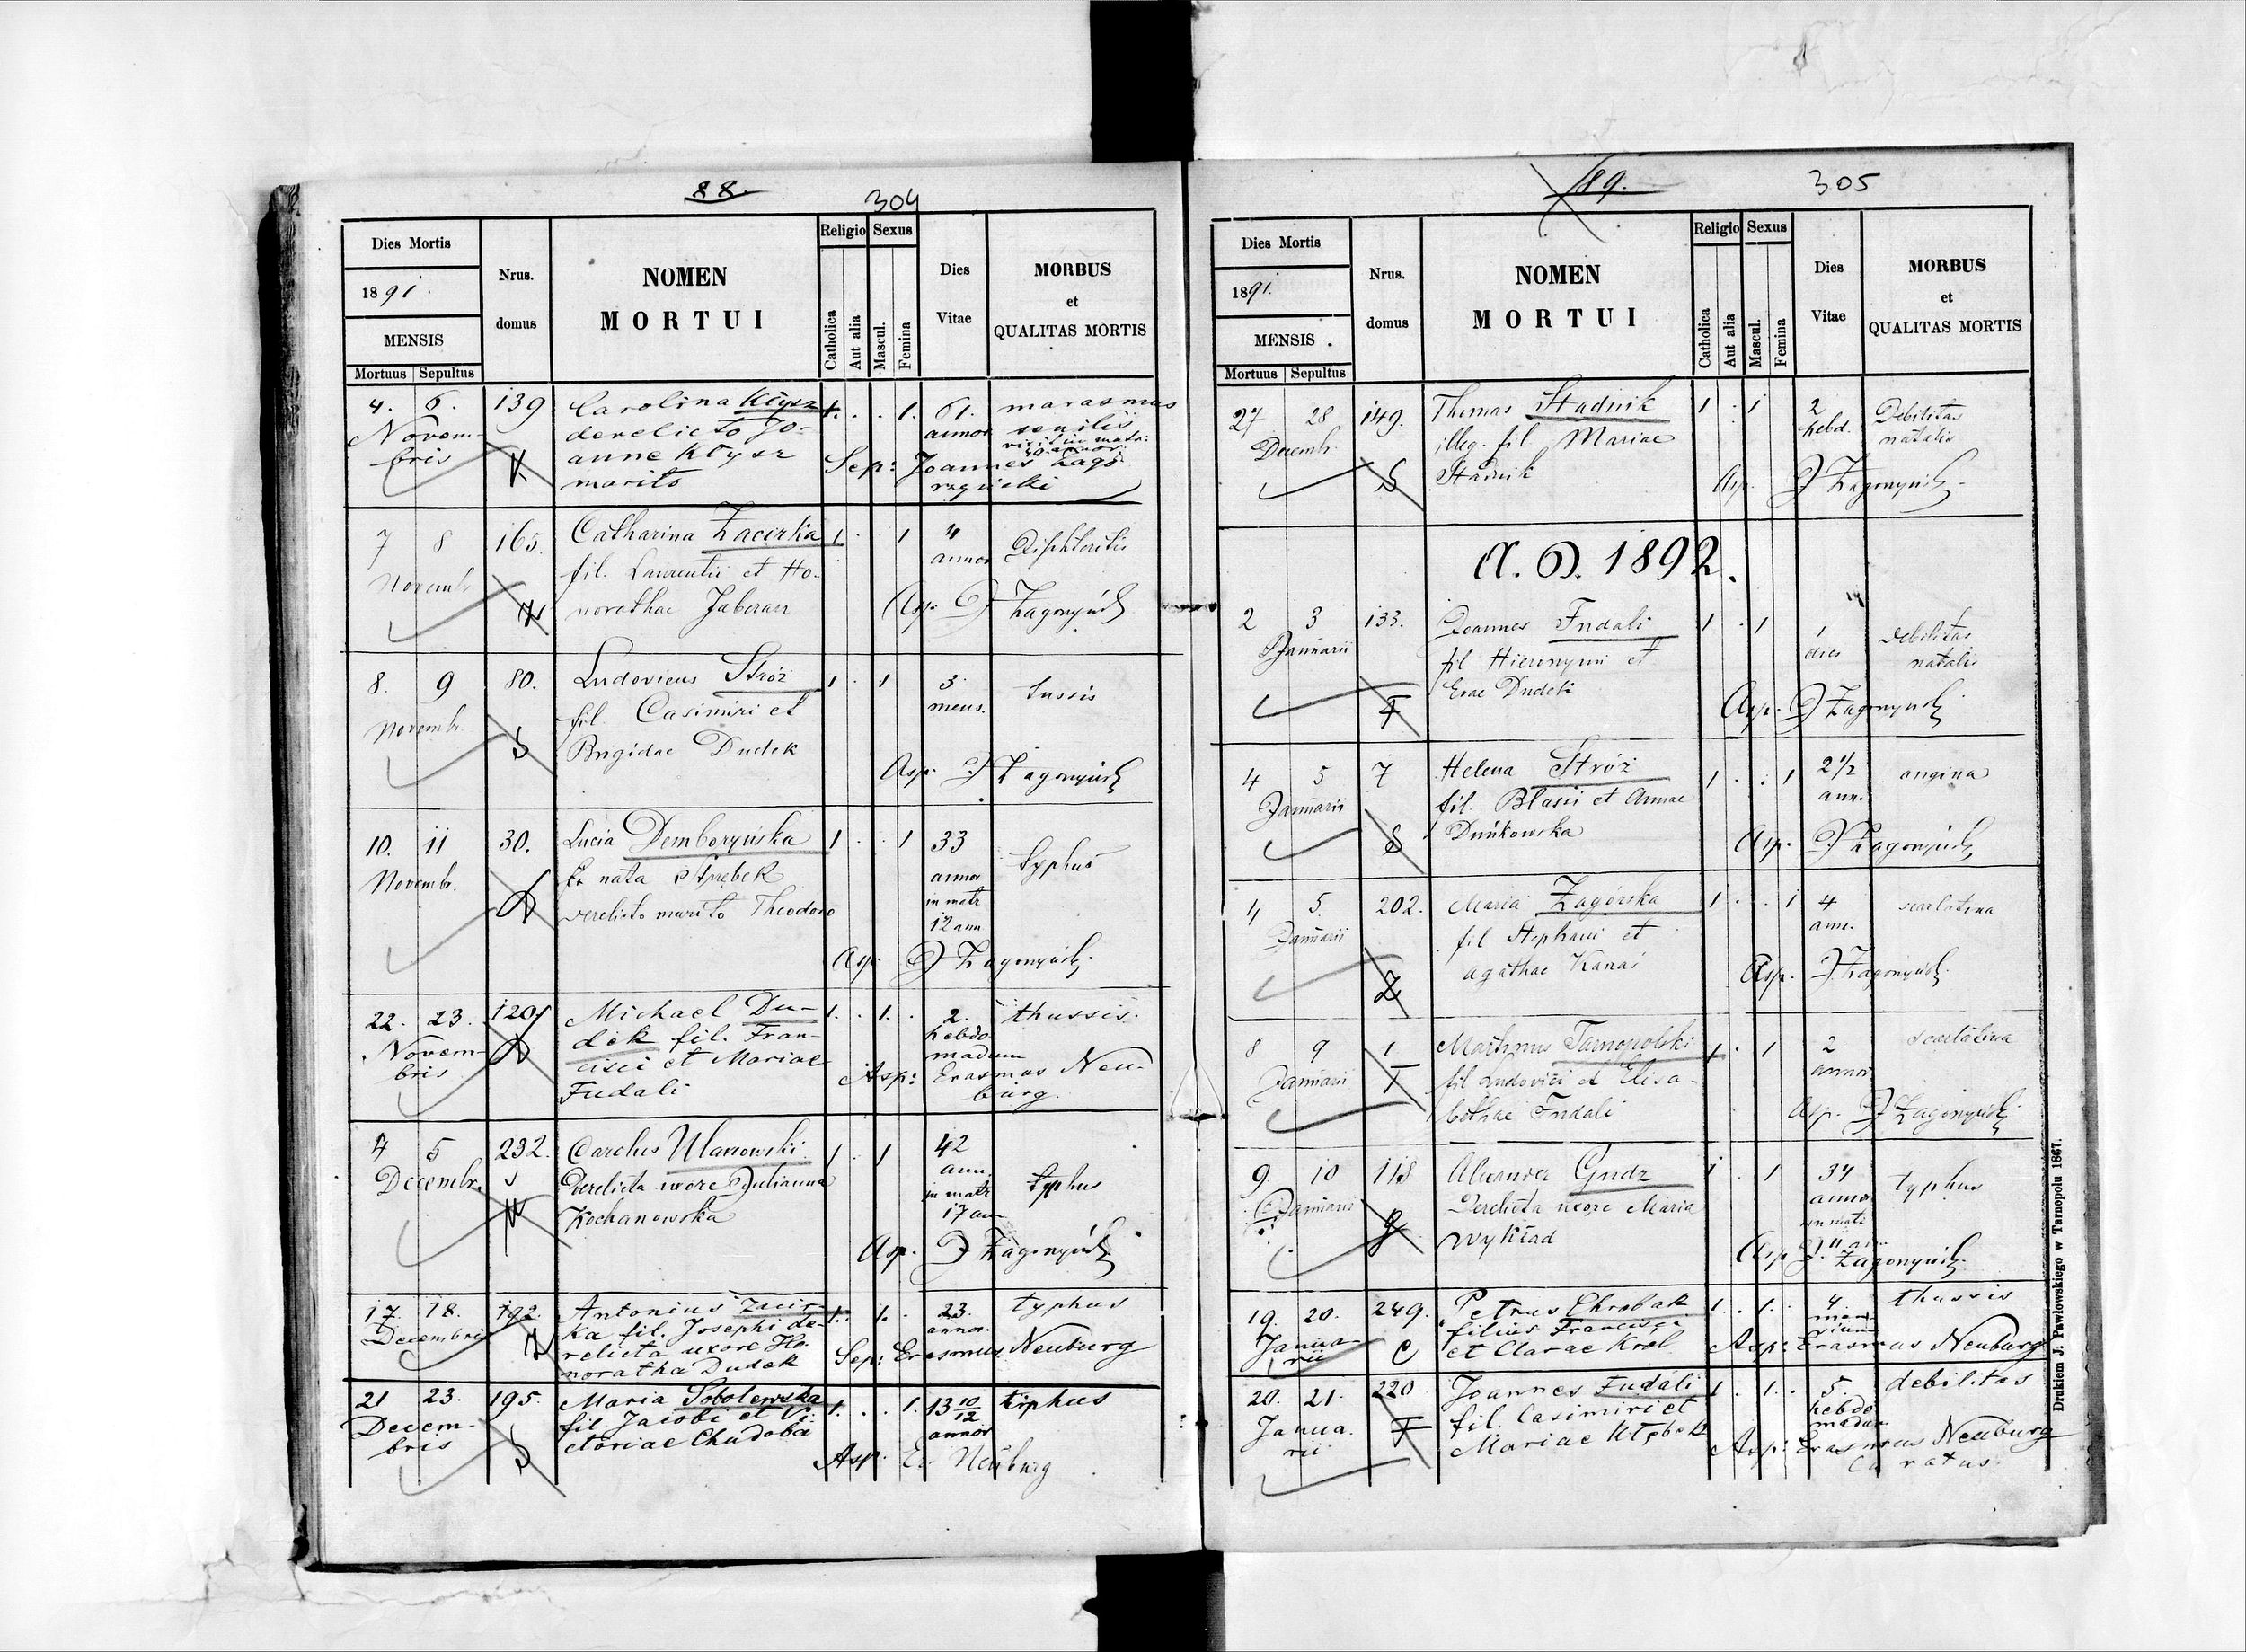 88.
304
Dies Mortis
1891.
MENSIS
Mortuus Sepultus
Nrus.
domus
NOMEN
MORTUI
Religio Sexus
Catholica
Aut alia
Mascul.
Femina
Dies
Vitae
MORBUS
et
QUALITAS MORTIS
4. 6. 139 Carolina Kłysz 1. . . 1. 61. marasmus
Novem- derelicto Jo- annor senilis
bris anne Kłysz vixit in matr:
K marito 40. annor.
Sep: Joannes Zago
rzyński
7 8 165. Catharina Zacirka 1 . . 1 4 Diphteritis
Novemb. fil. Laurentii et Ho- annor
norathae
Asp. J Zagorzyński
8. 9 80. Ludovicus Stróż 1 . 1 3 tussis
Novembr. fil. Casimiri et mens.
S Brigidae Dudek
Asp. J Zagorzyński
10. 11 30. Lucia 1 . . 1 33 typhus
Novembr. nata annor
D derelicto marito Theodoro in matr
12 ann
Asp. J Zagorzyński
22. 23. 120 Michael Du- 1. . 1. . 2. thussis.
Novem- D dek fil. Fran- hebdo
bris cisci et Mariae madum
Fudali Asp: Erasmus Neu-
burg.
4 5 232. Carolus Ulanowski 1 . 1 42 typhus
Decembr. Derelicta uxore Julianna ann.
Kochanowska in matr
17 ann
Asp. J Zagorzyński
17. 18. 192. Antonius Zacir- 1. . 1. . 23. typhus
Decembris ka fil. Josephi de- annor.
Z relicta uxore Ho-
noratha Dudek Sep: Erasmus Neuburg
21 23. 195. Maria Sobolewska 1. . . 1. 13 10/12 tiphus
Decem- fil Jacobi et Vi- annor
bris S ctoriae Chudoba
Asp: Er Neuburg
89.
305
Dies Mortis
1891.
MENSIS
Mortuus Sepultus
Nrus.
domus
NOMEN
MORTUI
Religio Sexus
Catholica
Aut alia
Mascul.
Femina
Dies
Vitae
MORBUS
et
QUALITAS MORTIS
27 28 149. Thomas Stadnik 1 . 1 2 Debilitas
Decemb. illeg. fil Mariae hebd. natalis
S Stadnik
Asp. J Zagorzyński
A. D. 1892.
2 3 133. Joannes Fudali 1 . 1 1 debilitas
Januarii fil Hieronymi et dies natalis
F Evae Dudek
Asp. J Zagorzyński
4 5 7 Helena Stróż 1 . . 1 2 1/2 angina
Januarii fil. Blasii et Annae ann.
S Duńkowska
Asp. J Zagorzyński
4 5. 202. Maria Zagórska 1 . . 1 4 scarlatina
Januarii fil Stephani et ann.
Z Agathae Kanas
Asp. J Zagorzyński
8 9 1 Martinus Tarnopolski 1 . 1 2 scarlatina
Januarii T fil Ludovici et Elisa- annor
bethae Fudali
Asp. J Zagorzyński
9 10 118 Gudz 1 . 1 34 typhus
Januarii Derelicta uxore Maria annor
g Wykład in matr
11 ann
Asp J. Zagorzyński
19. 20. 249. Petrus Chrobak 1. . 1. . 4. thussis
Janua- filius Francisci men
rii C et Clarae Krol sium
Asp: Erasmus Neuburg
20. 21. 220 Joannes Fudali 1. . 1. . 5. debilitas
Janua. fil. Casimiri et hebdo
rii F Mariae Kłębek madum
Asp: Erasmus Neuburg
Curatus.
Drukiem J. Pawłowskiego w Tarnopolu 1867.